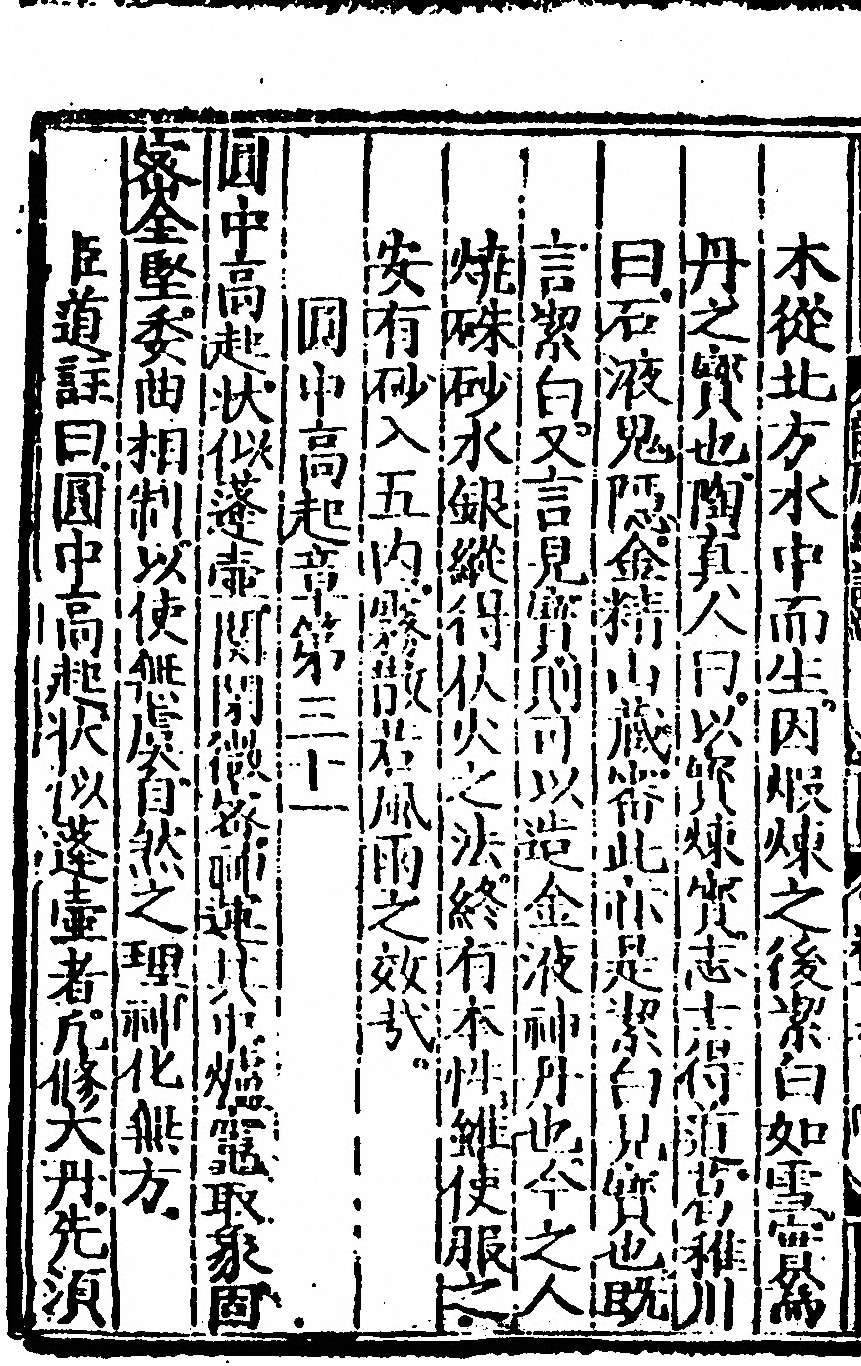 木從北方水中而生因煅煉之後潔白如雪實爲
丹之寶也陶真人曰以寶煉寶志士得道葛稚川
曰石液鬼隱金精山藏者此亦是潔白見寶也既
言潔白又言見寶則可以造金液神丹也今之人
燒硃砂水銀縱得伏火之法終有本性雖使服之
安有砂入五內霧散若風雨之效哉
圓中高起章第三十一
圓中高起狀似蓬壺關閉微密神運其中爐竈取象固
塞全堅委曲相制以使無虞自然之理神化無方
臣道註曰圓中高起狀似蓬壺者凡修大丹先須